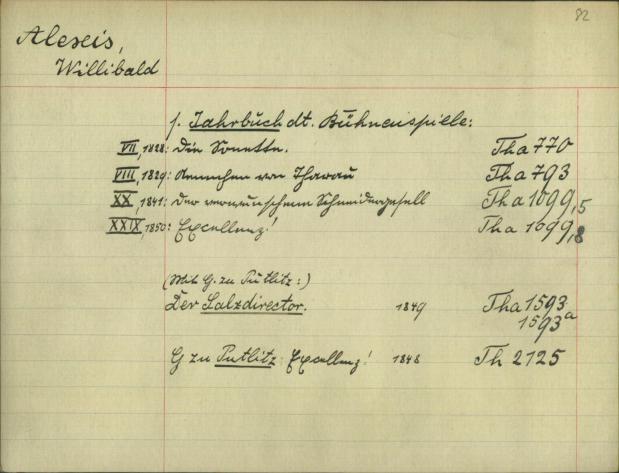 82
Alexis,
Willibald
s. Jahrbuch dt. Bühnenspiele:
VII, 1828: Die Sonette. Tha 770
VIII, 1829: Aennchen von Tharau Tha 793
XX, 1841: Der verwunschene Schneidergesell Tha 1099,5
XXIX, 1850: Excellenz! Tha 1099,8
(Mit G. zu Putlitz:)
Der Salzdirector. 1849 Tha 1593
1593a
G zu Putlitz: Excellenz! 1848 Th 2125